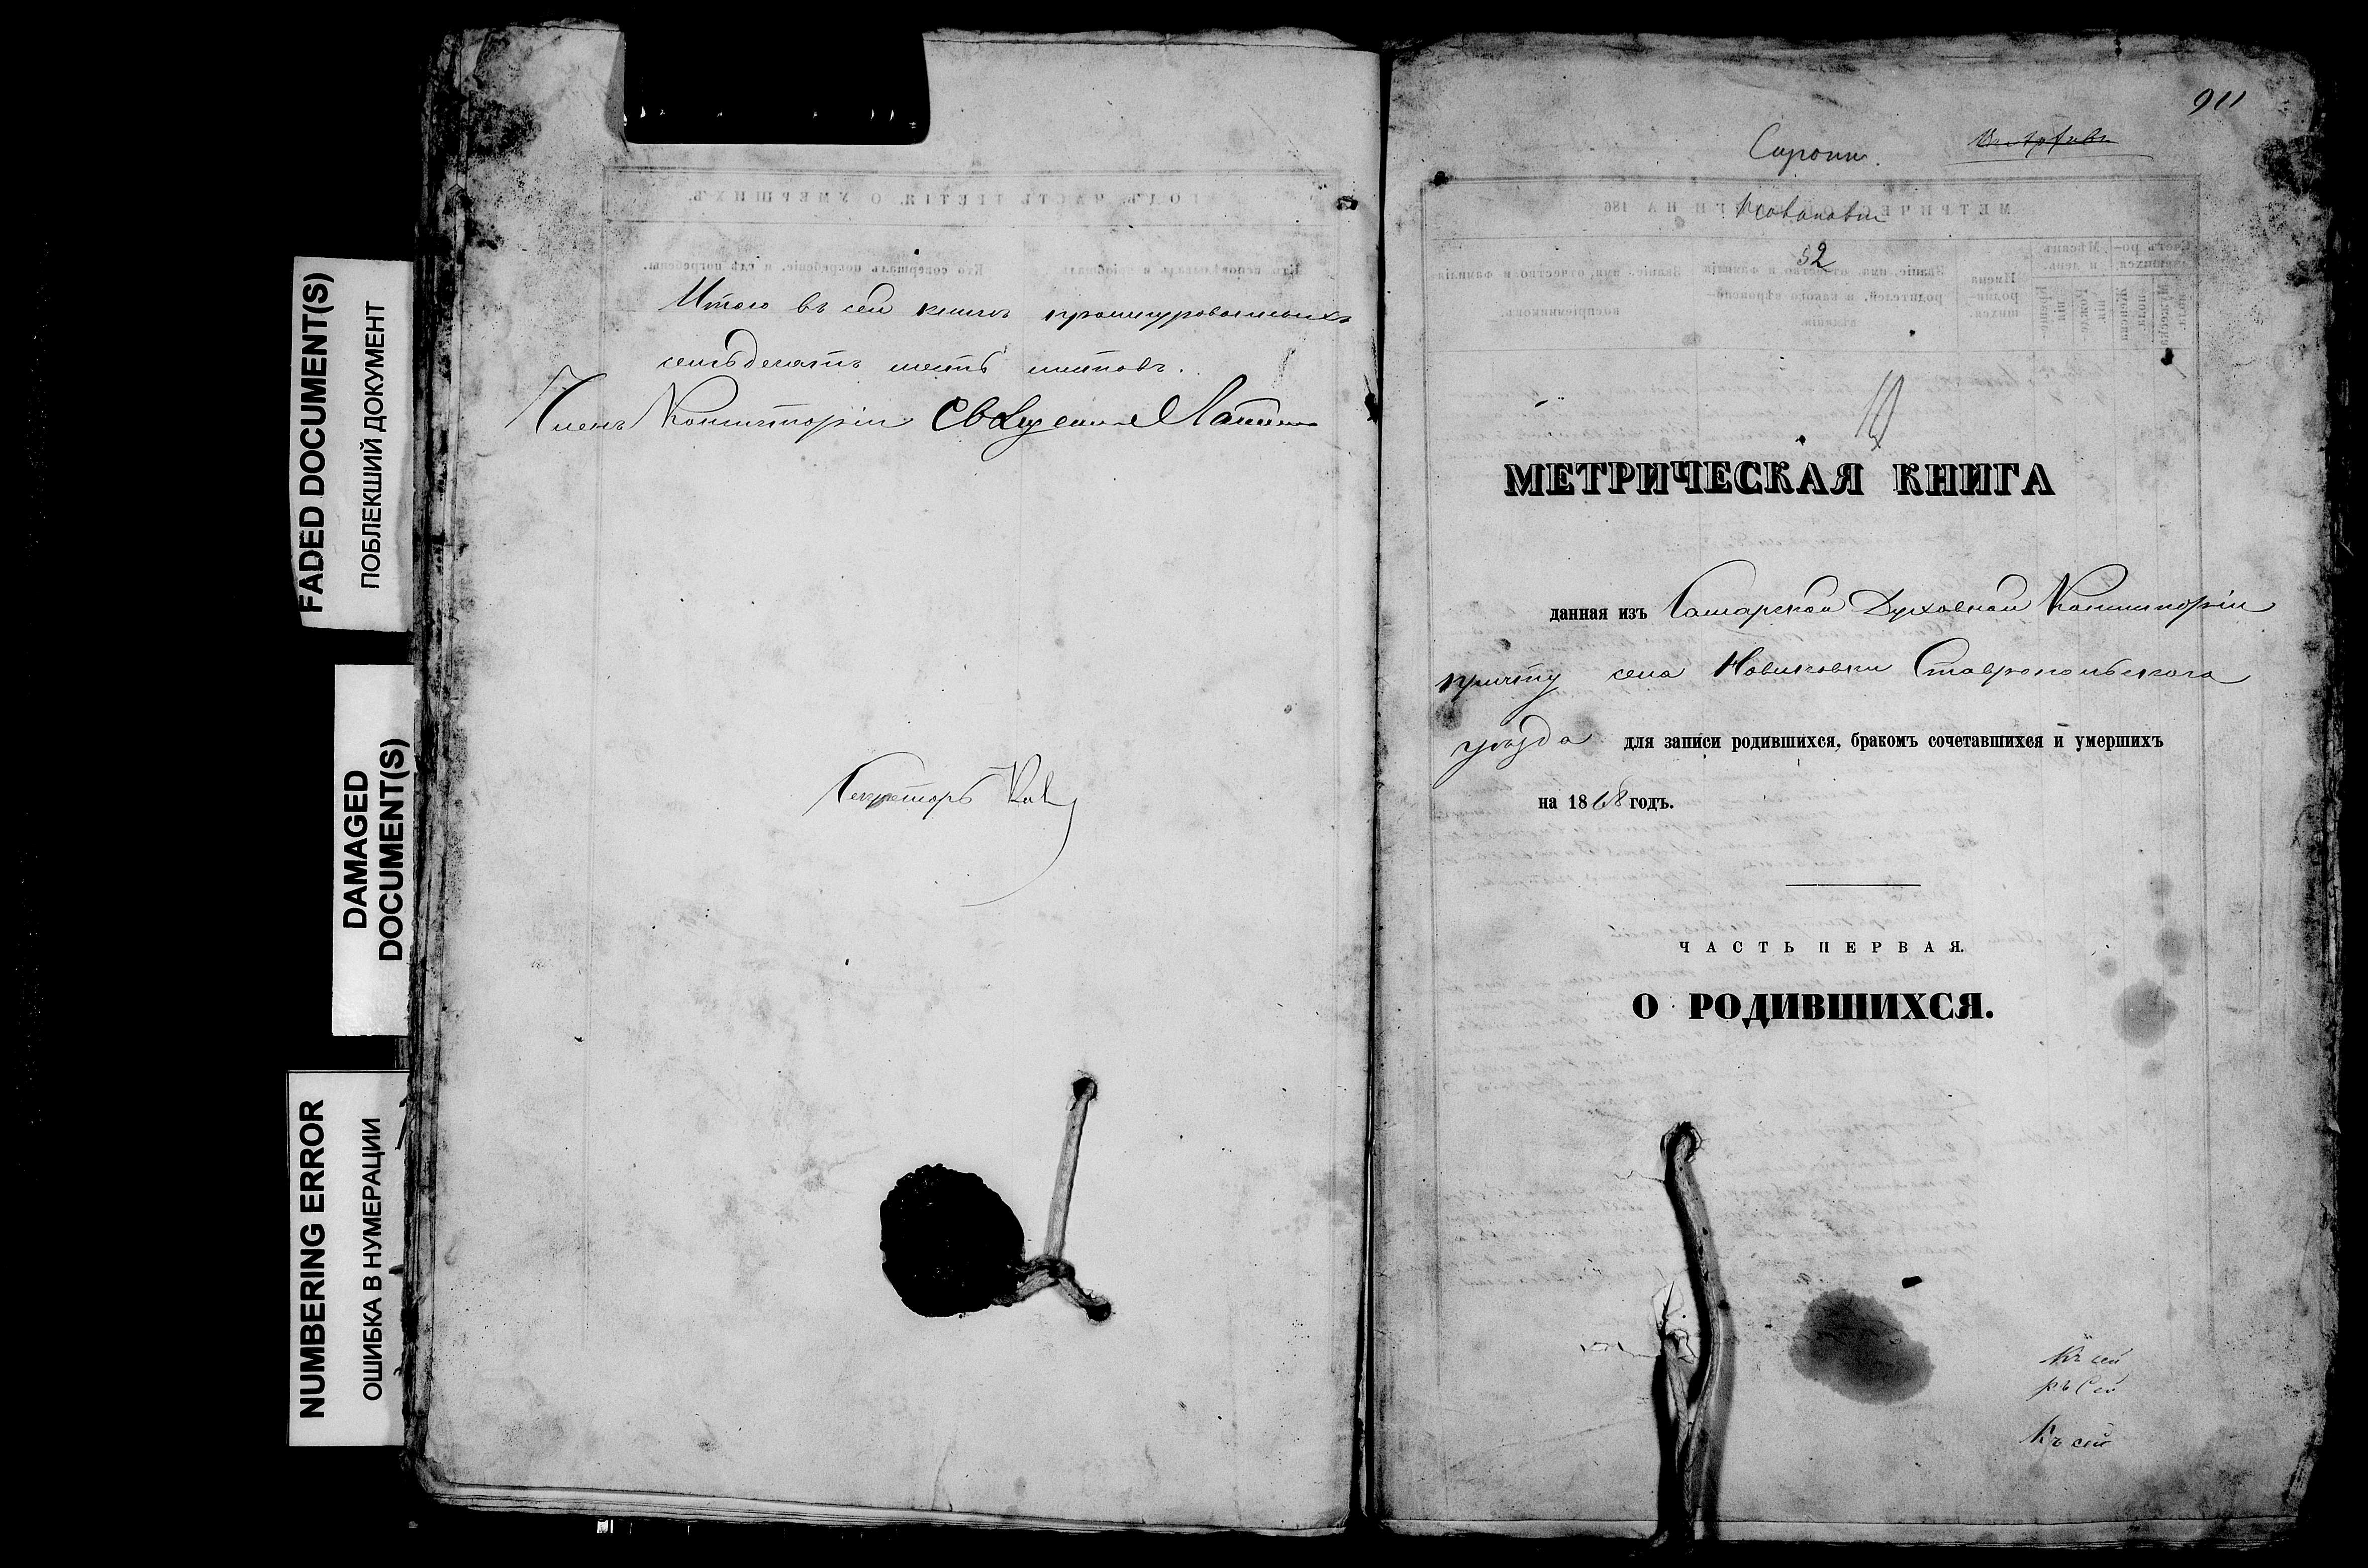 FADED DOCUMENT(S)
ПОБЛЕКШИЙ ДОКУМЕНТ
DAMAGED
DOCUMENT(S)
NUMBERING ERROR
ОШИБКА В НУМЕРАЦИИ
Итого въ сей книгѣ прошнурованныхъ
семьдесятъ шесть листовъ.
Членъ Консисторіи Священникъ
Секретарь
911
52
МЕТРИЧЕСКАЯ КНИГА
данная изъ Самарской Духовной Консисторіи
причту села Новиковки Ставропольскаго
уѣзда для записи родившихся, бракомъ сочетавшихся и умершихъ
на 1868 годъ.
ЧАСТЬ ПЕРВАЯ.
О РОДИВШИХСЯ.
Къ сей
Къ сей